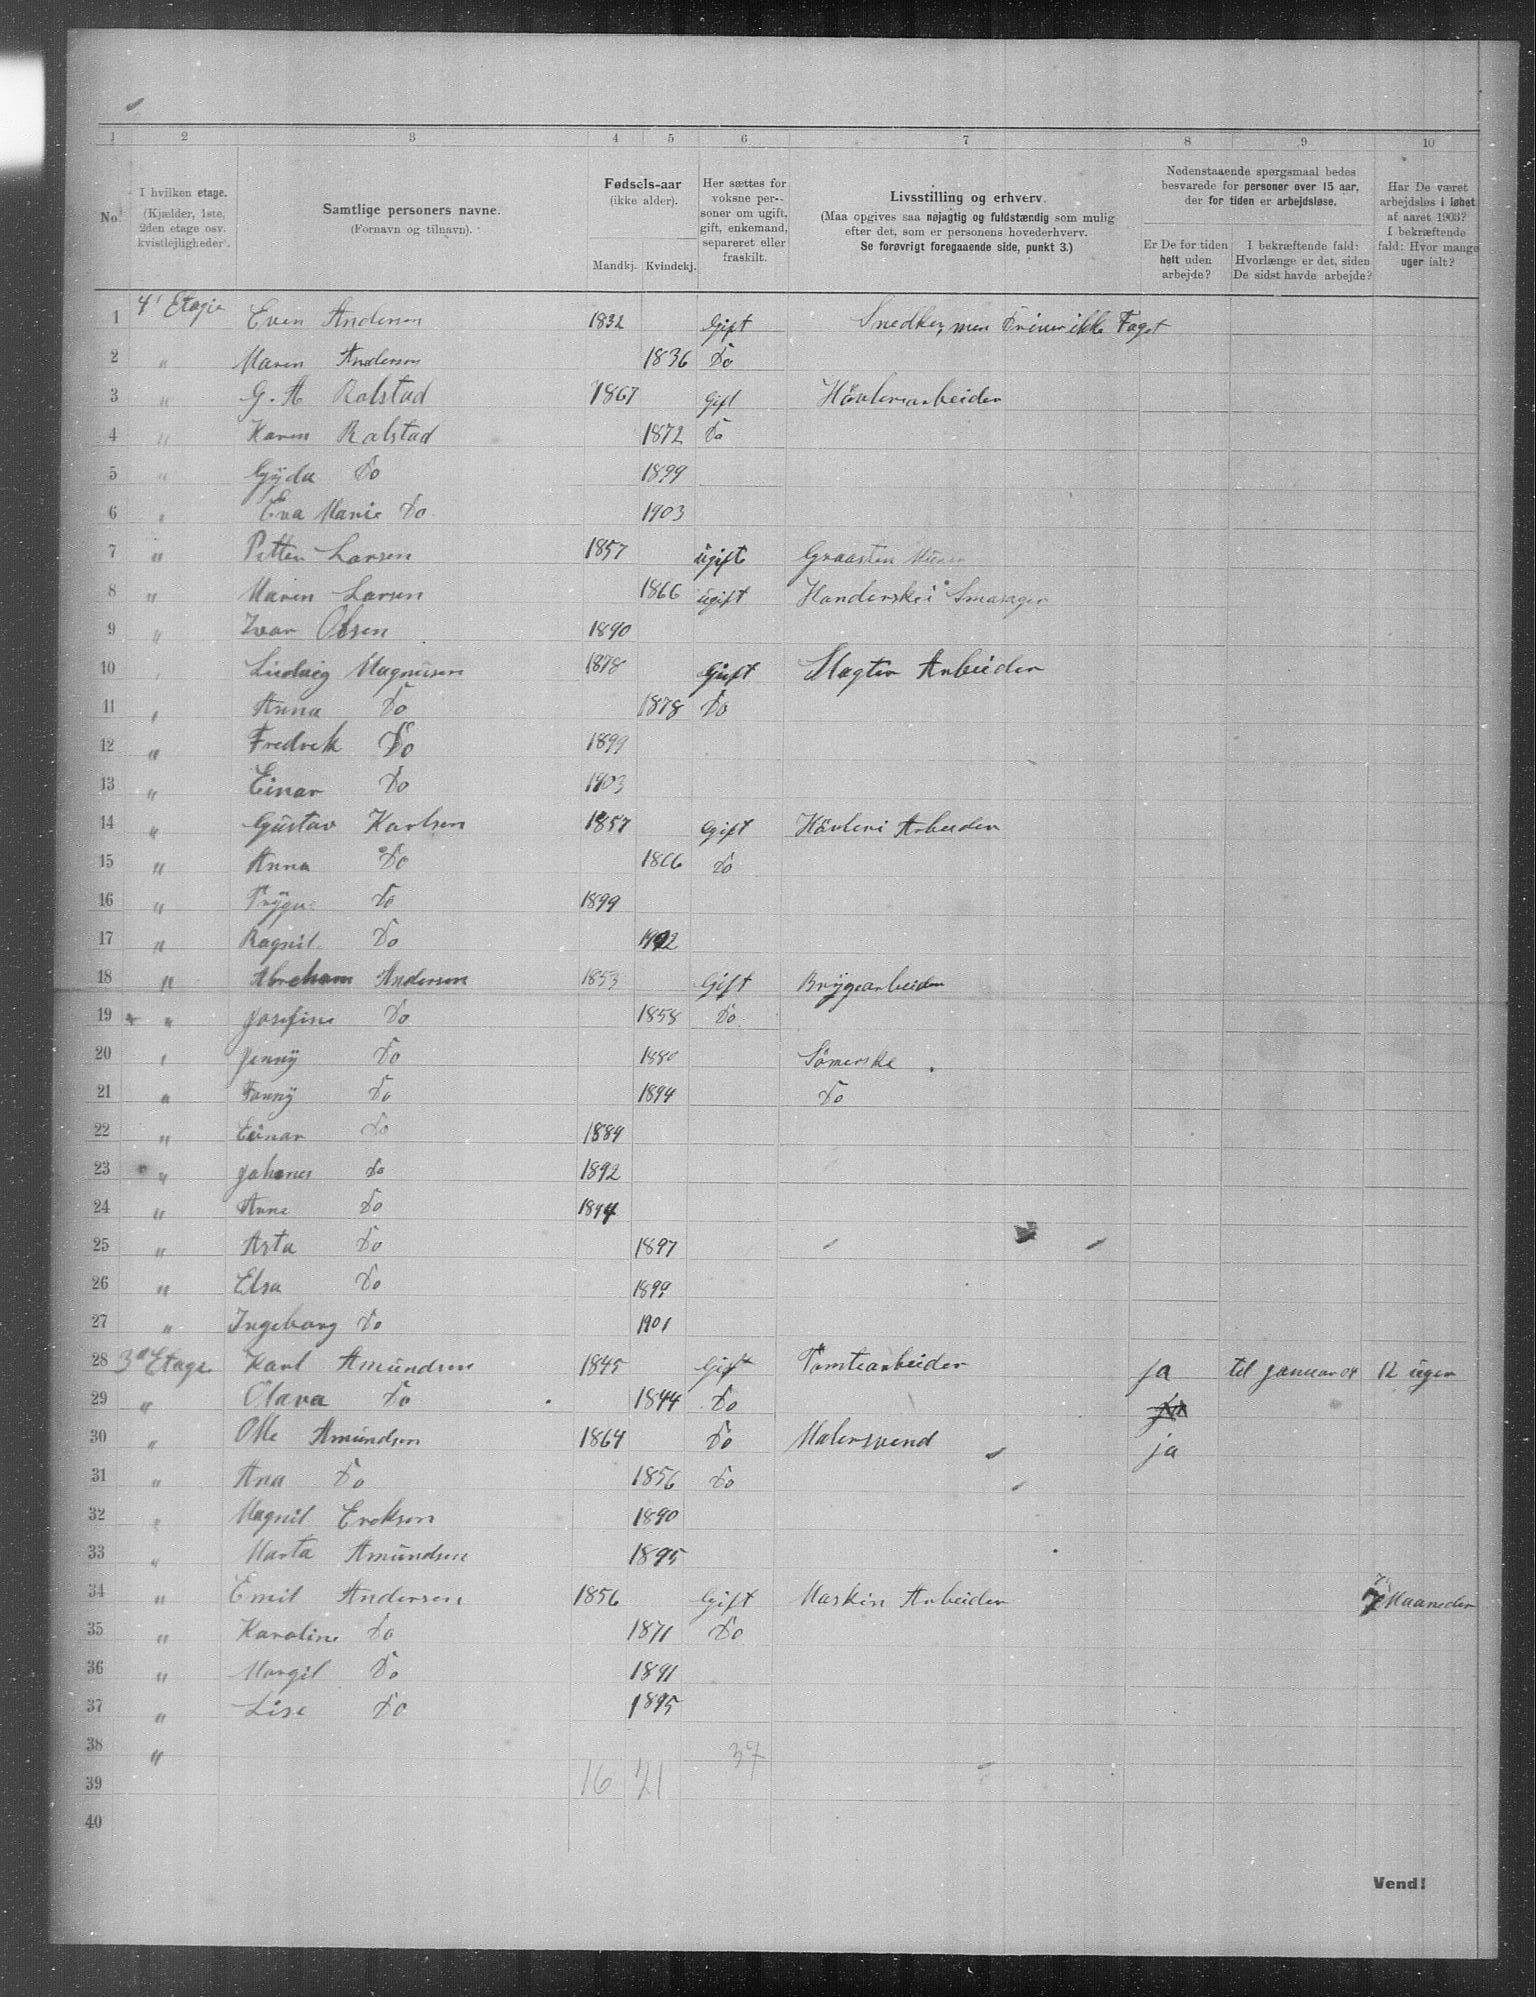 1 2 3 4 5 6 7 8 9 10
No.
I hvilken etage.
(Kjælder, 1ste,
2den etage osv.
kvistlejligheder.
Samtlige personers navne.
(Fornavn og tilnavn).
Fødsels-aar
(ikke alder).
Mandkj. Kvindekj.
Her sættes for
voksne per-
soner om ugift,
gift, enkemand,
separeret eller
fraskilt.
Livsstilling og erhverv.
(Maa opgives saa nøjagtig og fuldstændig som mulig
efter det, som er personens hovederhverv.
Se forøvrigt foregaaende side, punkt 3.)
Nedenstaaende spørgsmaal bedes
besvarede for personer over 15 aar,
der for tiden er arbejdsløse.
Er De for tiden
helt uden
arbejde?
I bekræftende fald:
Hvorlænge er det, siden
De sidst havde arbejde?
Har De været
arbejdsløs i løbet
af aaret 1903?
I bekræftende
fald: Hvor mange
uger ialt?
1 4' Etagie Even Andersen 1832 Gift Snedker, men Driver ikke Faget
2 " Maren Andersen 1836 Do
3 " G. A Rolstad 1867 Gift Hövleriarbeider
4 " Karen Rolstad 1872 Do
5 " Gyda Do 1899
6 " Eva Marie Do 1903
7 " Petter Larsen 1857 ugift Graasten Murer
8 " Maren Larsen 1866 ugift ugift Handerske
9 " Ivar Olsen 1890
10 " Ludvig Magnusen 1878 Gift Slagter Arbeider
11 " Anna Do 1878 Do
12 " Fredrek Do 1899
13 " Einar Do 1903
14 " Gustav Karlsen 1857 Gift Hövleri Arbeider
15 " Anna Do 1866 Do
16 " Trygve Do 1899
17 " Ragnil Do 1902
18 " Abreham Andersen 1853 Gift Brygearbeider
19 " Josefine Do 1858 Do
20 " Jenny Do 1880 Sömerske
21 " Fanny Do 1894 Do
22 " Einar Do 1889
23 " Johanes Do 1892
24 " Arne Do 1894
25 " Asta Do 1897
26 " Elsa Do 1899
27 " Ingeborg Do 1901
28 3d Etage Karl Amundsen 1845 Gift Tomtearbeider ja til januar 04 12 uger
29 " Olava Do 1844 Do
30 " Olle Amundsen 1864 Do Malersvend ja
31 " Ana Do 1856 Do
32 " Magnil Ereksen 1890
33 " Marta Amundsen 1895
34 " Emil Andersen 1856 Gift Maskin Arbeider 7 Maaneder
35 " Karoline Do 1871 Do
36 " Margit Do 1891
37 " Lise Do 1895
38 " 37
39 16 21
40
Vend!